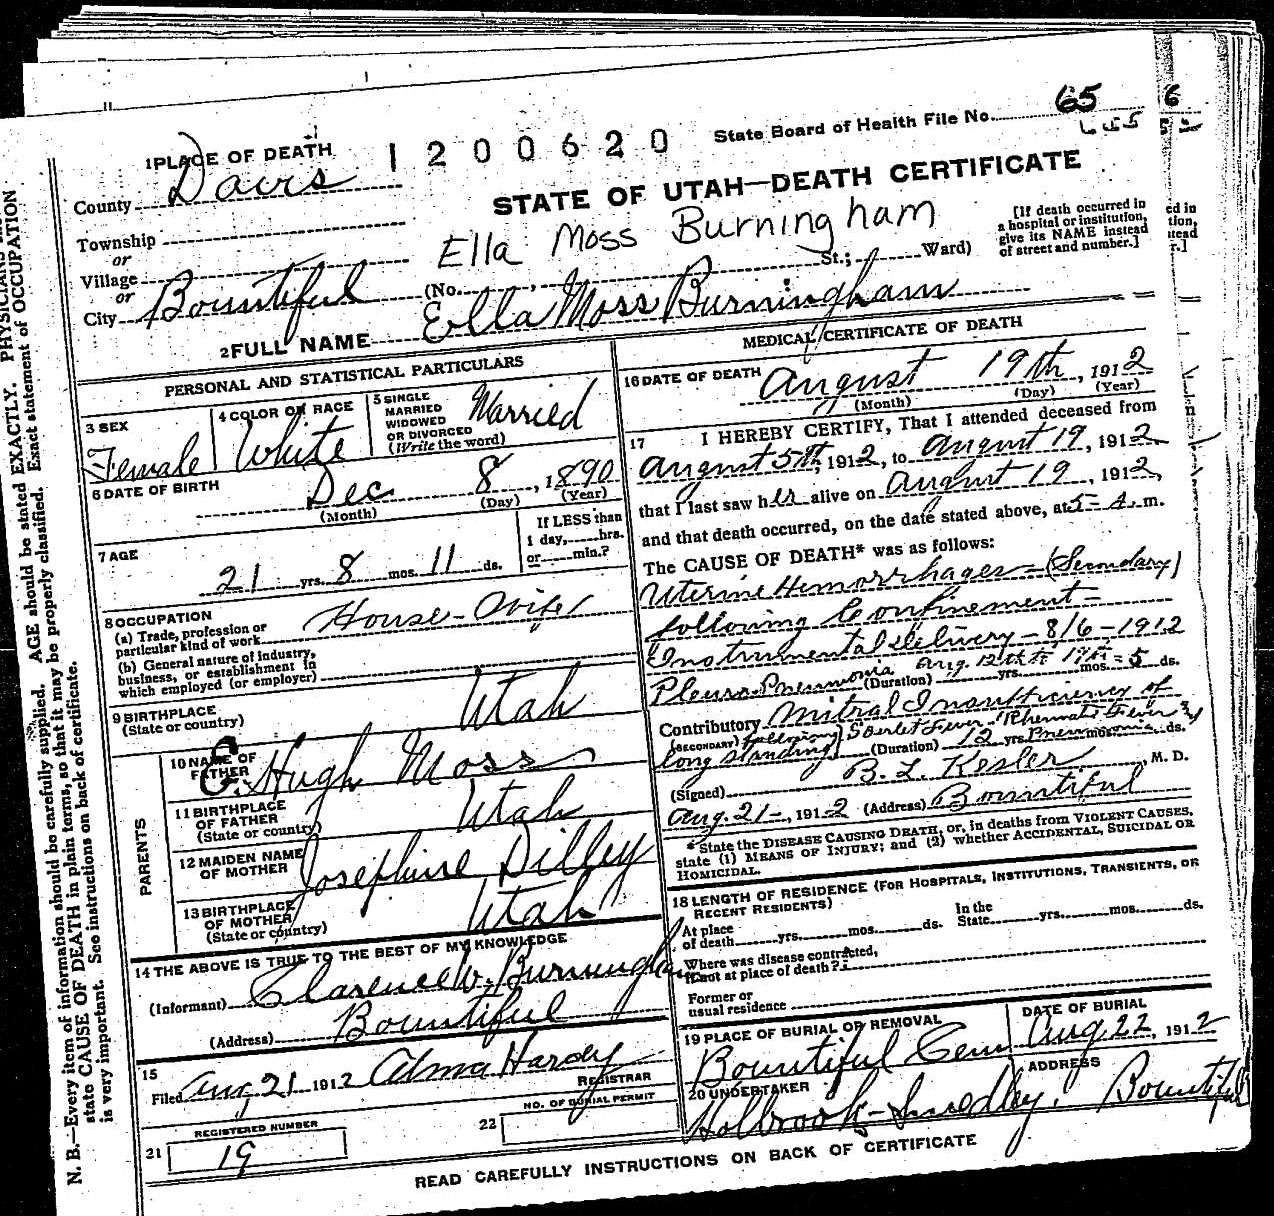 65
6
655
State Board of Health File No.
1PLACE OF DEATH
1200620
County Davis
STATE OF UTAH—DEATH CERTIFICATE
Township
or
Village
or
City Bountiful
Ella Moss Burningham
(No. St.; Ward)
[If death occurred in
a hospital or institution,
give its NAME instead
of street and number.]
ed in
tion,
tead
r.]
2FULL NAME Ella Moss Burningham
PERSONAL AND STATISTICAL PARTICULARS
3 SEX
Female
4 COLOR OR RACE
White
5 SINGLE
MARRIED
WIDOWED
OR DIVORCED
(Write the word)
Married
6 DATE OF BIRTH
Dec 8, 1890
(Month) (Day) (Year)
7 AGE
21 yrs. 8 mos. 11 ds.
If LESS than
1 day, hrs.
or min.?
8 OCCUPATION
(a) Trade, profession or
particular kind of work
House-Wife
(b) General nature of industry,
business, or establishment in
which employed (or employer)
9 BIRTHPLACE
(State or country)
Utah
PARENTS
10 NAME OF
FATHER
G. Hugh Moss
11 BIRTHPLACE
OF FATHER
(State or country)
Utah
12 MAIDEN NAME
OF MOTHER
Josephine Dilley
13 BIRTHPLACE
OF MOTHER
(State or country)
Utah
14 THE ABOVE IS TRUE TO THE BEST OF MY KNOWLEDGE
(Informant) Clarence W. Burningham
(Address) Bountiful
15
Filed Aug 21 1912 Alma Hardy
REGISTRAR
REGISTERED NUMBER
21 19
NO. OF BURIAL PERMIT
22
MEDICAL CERTIFICATE OF DEATH
16 DATE OF DEATH
August 19th, 1912
(Month) (Day) (Year)
17 I HEREBY CERTIFY, That I attended deceased from
August 5th, 1912, to August 19, 1912
that I last saw her alive on August 19, 1912,
and that death occurred, on the date stated above, at 5- A. m.
The CAUSE OF DEATH* was as follows:
Uterine Hemorrhages - (Secondary)
following Confinement -
Instrumental Delivery - 8/6 - 1912
Pleuro-Pneumonia Aug. 12th to 17th = 5 ds.
(Duration) yrs. mos.
Contributory Mitral Insufficiency of
(SECONDARY) following Scarlet Fever, Rheumatic Fever &
long standing (Duration) 12 yrs. Pneumonia mos. ds.
(Signed) B. L. Kesler, M. D.
Aug. 21-, 1912 (Address) Bountiful
*State the DISEASE CAUSING DEATH, or, in deaths from VIOLENT CAUSES,
state (1) MEANS OF INJURY; and (2) whether ACCIDENTAL, SUICIDAL OR
HOMICIDAL.
18 LENGTH OF RESIDENCE (FOR HOSPITALS, INSTITUTIONS, TRANSIENTS, OR
RECENT RESIDENTS)
At place
of death yrs. mos. ds.
In the
State yrs. mos. ds.
Where was disease contracted,
if not at place of death?
Former or
usual residence
19 PLACE OF BURIAL OR REMOVAL
Bountiful Cem
DATE OF BURIAL
Aug 22, 1912
20 UNDERTAKER
Holbrook-Smedley.
ADDRESS
Bountiful
READ CAREFULLY INSTRUCTIONS ON BACK OF CERTIFICATE
N. B.—Every item of information should be carefully supplied. AGE should be stated EXACTLY. PHYSICIANS
state CAUSE OF DEATH in plain terms, so that it may be properly classified. Exact statement of OCCUPATION
is very important. See instructions on back of certificate.